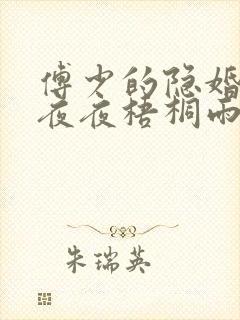 傅少的隐婚
夜夜梧桐雨
朱瑞英